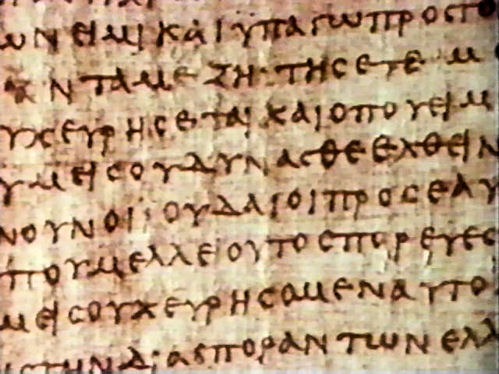 ΩΝΕΙΜΙΚΑΙΥΠΑΓΩΠΡΟϹΤΟ
ΑΝΤΑΜΕΖΗΤΗϹΕΤΕΜ
ΥΧΕΥΡΗϹΕΤΑΙΚΑΙΟΠΟΥΕΙΜ
ΥΜΕΙϹΟΥΔΥΝΑϹΘΕΕΛΘΕΙΝ
ΝΟΥΝΟΙΪΟΥΔΑΙΟΙΠΡΟϹΕΑΥ
ΠΟΥΜΕΛΛΕΙΟΥΤΟϹΠΟΡΕΥΕϹ
ΜΕΙϹΟΥΧΕΥΡΗϹΟΜΕΝΑΥΤΟ
ΙϹΤΗΝΔΙΑϹΠΟΡΑΝΤΩΝΕΛΛ